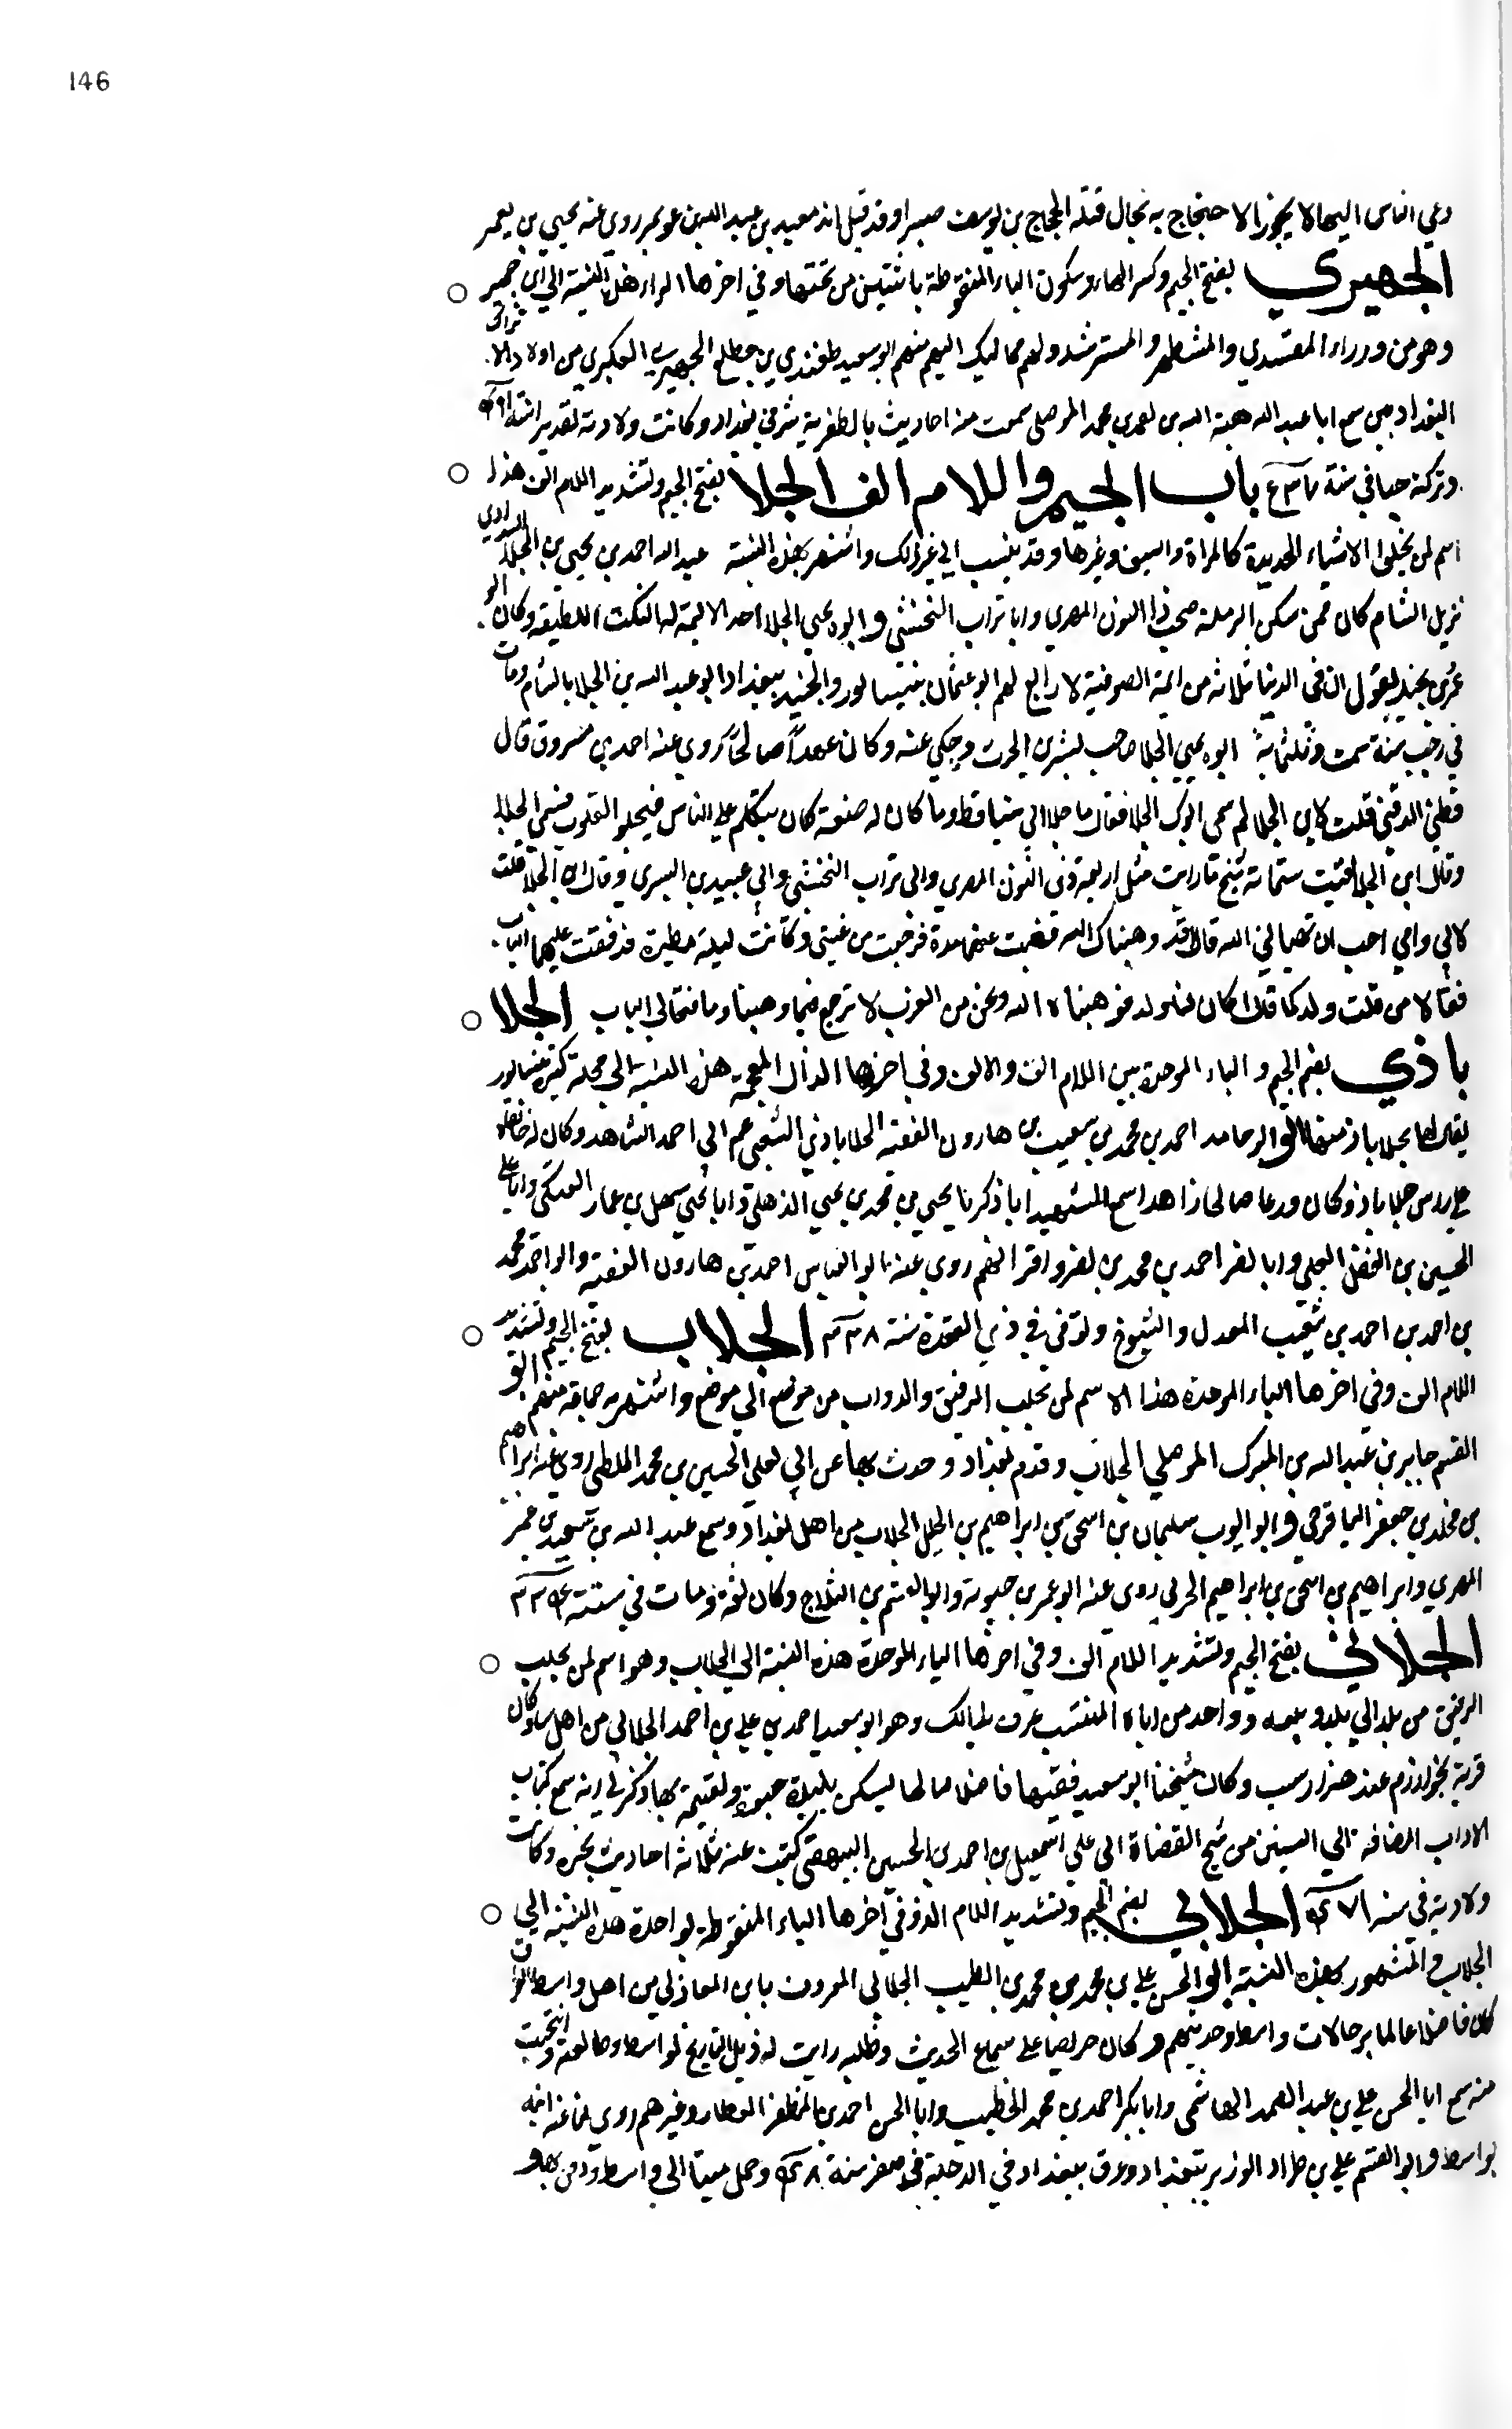 146
ودعي الناس اليها لا يجوز الاحتجاج به بحال قتله الحجاج بن يوسف صبرا وقد قيل انه معبد بن عبد الله بن عويمر روى عنه يحيى بن يعمر
الجهيري بفتح الجيم وكسر الهاء وسكون الياء المنقوطة باثنتين من تحتها وفي اخرها الراء هذه النسبة الى ابن جهير
وهو من وزراء المقتدي والمستظهر والمسترشد ولهم مماليك اليهم منهم ابو سعيد طغندي بن خطلخ الجهيري العكبري من اولاد الاتراك
البغداديين سمع ابا عبد الله هبة الله بن محمد الموصلي سمعت منه احاديث بالظفرية شرقي بغداد وكانت ولادته تقديرا سنة
وتركته حيا في سنة باب الجيم واللام الف الجلا بفتح الجيم وتشديد اللام الف هذا
اسم لمن يجلوا الاشياء الحديدة كالمراة والسيف وغيرها وقد ينسب الى غير ذلك واشتهر بهذه النسبة عبد الله احمد بن يحيى بن الجلا البغدادي
نزيل الشام كان ممن سكن الرملة صحب ذا النون المصري وابا تراب النخشبي وابوه يحيى الجلا احد الايمة له النكت اللطيفة وكان ابو
عمرو بن نجيد يقول ان في الدنيا ثلاثة من ايمة الصوفية لا رابع لهم ابو عثمان بنيسابور والجنيد ببغداد ابو عبد الله بن الجلا بالشام ومات
في رجب سنة ست وثلثماية ابوه يحيى الجلا صاحب بشر بن الحرث وحكي عنه وكان عبدا صالحا روى عنه احمد بن مسروق قال
الدقي قلت لابن الجلا لم سمي ابوك الجلا فقال ما جلا ابي شيا قط وما كان له صنعة كان يتكلم على الناس فيجلو القلوب فسمي الجلا
وقال ابن الجلا لقيت ستماية شيخ ما رايت مثل اربعة ذي النون المصري وابي تراب النخشبي وابي عبيد البسري وقال ابن الجلا قلت
لابي وامي احب ان تهباني لله قالا قد وهبناك لله فغبت عنهما مدة فرجعت من غيبتي وكانت ليلة مطيرة فدققت عليهما الباب
فقالا من قلت ولدكما قالا كان لنا ولد فوهبناه لله ونحن من العرب لا نرجع فيما وهبنا وما فتحا لي الباب الجلا
باذي بضم الجيم والباء الموحدة بين اللام الف والالف وفي اخرها الذال المعجمة هذه النسبة الى محلة كبيرة بنيسابور
يقال لها جلاباذ منها ابو حامد احمد بن محمد بن شعيب بن هارون الفقيه الجلاباذي الشعبي عم ابي احمد الشاهد وكان له خانقاه
على راس جلاباذ وكان ورعا صالحا زاهدا سمع الشهيد ابا زكريا يحيى بن محمد بن يحيى الذهلي وابا يحيى سهل بن عمار العتكي وابا علي
الحسين بن الفضل البجلي وابا نصر احمد بن محمد بن نصر واقرانهم روى عنه ابو العباس احمد بن هارون الفقيه وابو احمد محمد
بن احمد بن احمد بن شعيب المعدل والشيوخ وتوفي في ذي القعدة سنة ٣٣٨ الجلاب بفتح الجيم وتشديد
اللام الف وفي اخرها الباء الموحدة هذا الاسم لمن يجلب الرقيق والدواب من موضع الى موضع واشتهر به جماعة منهم ابو
القسم جابر بن عبد الله بن المبرك الموصلي الجلاب وقدم بغداد وحدث بها عن ابي يعلى الحسين بن محمد الملطي روى عنه ابراهيم
بن مخلد بن جعفر الباقرحي وابو ايوب سليمان بن اسحق بن ابراهيم بن الخليل الجلاب من اهل بغداد وسمع عبد الله بن سعيد بن
المصري وابراهيم بن اسحق بن ابراهيم الحربي روى عنه ابو عمر بن حيويه وابو القسم بن الثلاج وكان ثقة ومات في سنة
الجلابي بفتح الجيم وتشديد اللام الف وفي اخرها الباء الموحدة هذه النسبة الى الجلاب وهو اسم لمن يجلب
الرقيق من بلد الى بلد ويبيعه وواحد من اباء المنتسب عرف بذلك وهو ابو سعيد احمد بن علي بن احمد الجلابي من اهل
قرية بخوارزم عند هزارسب وكان شيخنا ابو سعيد فقيها فاضلا صالحا يسكن بليدة ولقيته بها وذكر لي انه سمع كتاب
الاداب المضافة الى السنن من شيخ القضاة ابي علي اسمعيل بن احمد بن الحسين البيهقي كتبت عنه ثلاثة احاديث وكانت
ولادته في سنة الجلابي بضم الجيم وتشديد اللام الف وفي اخرها الباء المنقوطة بواحدة هذه النسبة الى
الجلاب والمشهور بهذه النسبة ابو الحسن علي بن محمد بن محمد بن الطيب الجلابي المعروف بابن المغازلي من اهل واسط العراق
كان فاضلا عالما برجالات واسط وحديثهم وكان حريصا على سماع الحديث وطلبه رايت له ذيل التاريخ لواسط وطالعته وانتخبت
منه سمع ابا الحسن علي بن عبد الصمد الهاشمي وابا بكر احمد بن محمد الخطيب وابا الحسن احمد بن المظفر العطار وغيرهم روى لنا عنه ابنه
بواسط وابو القسم علي بن طراد الوزير ببغداد وغرق ببغداد في الدجلة في صفر سنة وحمل ميتا الى واسط ودفن بها و